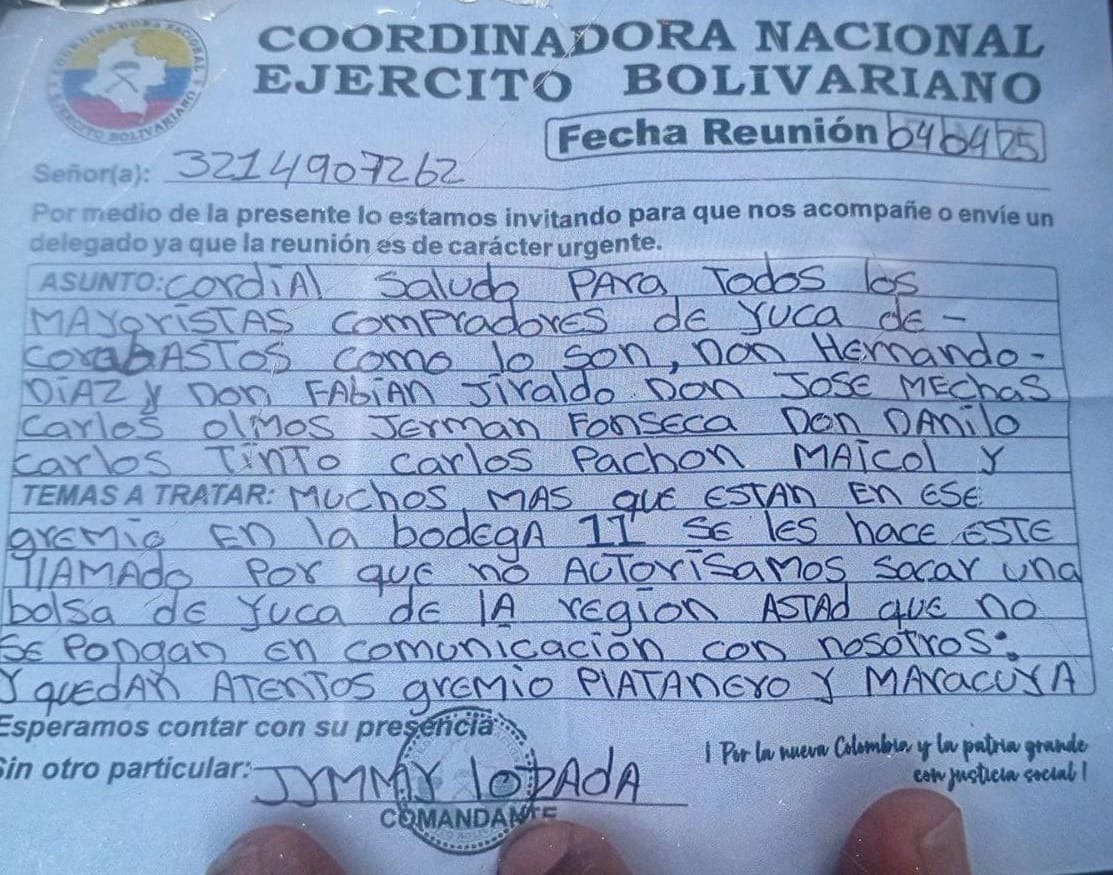 COORDINADORA NACIONAL
EJERCITO BOLIVARIANO
Fecha Reunión 040425
Señor(a): 3214907262
Por medio de la presente lo estamos invitando para que nos acompañe o envíe un
delegado ya que la reunión es de carácter urgente.
ASUNTO: CORDiAl Saludo PARA Todos los
MAYORiSTAS COMPRADORES de YUCA de -
CorabASTOS COMO lo Son, Don HErnando -
DiAZ y Don FAbiAN JiRaldo. Don JOSE MEchas
Carlos OlMOS JErMan FONSECA DON DANilo
Carlos TinTO Carlos PACHON MAiCOl Y
TEMAS A TRATAR: MUCHOS MAS QUE ESTAN EN ESE
grEMiO EN la bodEgA 11 SE lES hacE ESTE
llAMAdo POR QUE no AUTORiSAMOS SACAR una
bolsa dE YUCA dE lA rEgion ASTAd QUE no
SE PONgan En COMUNiCACiÓN CON nosotros:
Y QUEDAN ATENTOS grEMiO PlATANERO Y MARACUYA
Esperamos contar con su presencia
Sin otro particular: JYMMY lOZADA
¡ Por la nueva Colombia y la patria grande
con justicia social !
COMANDANTE